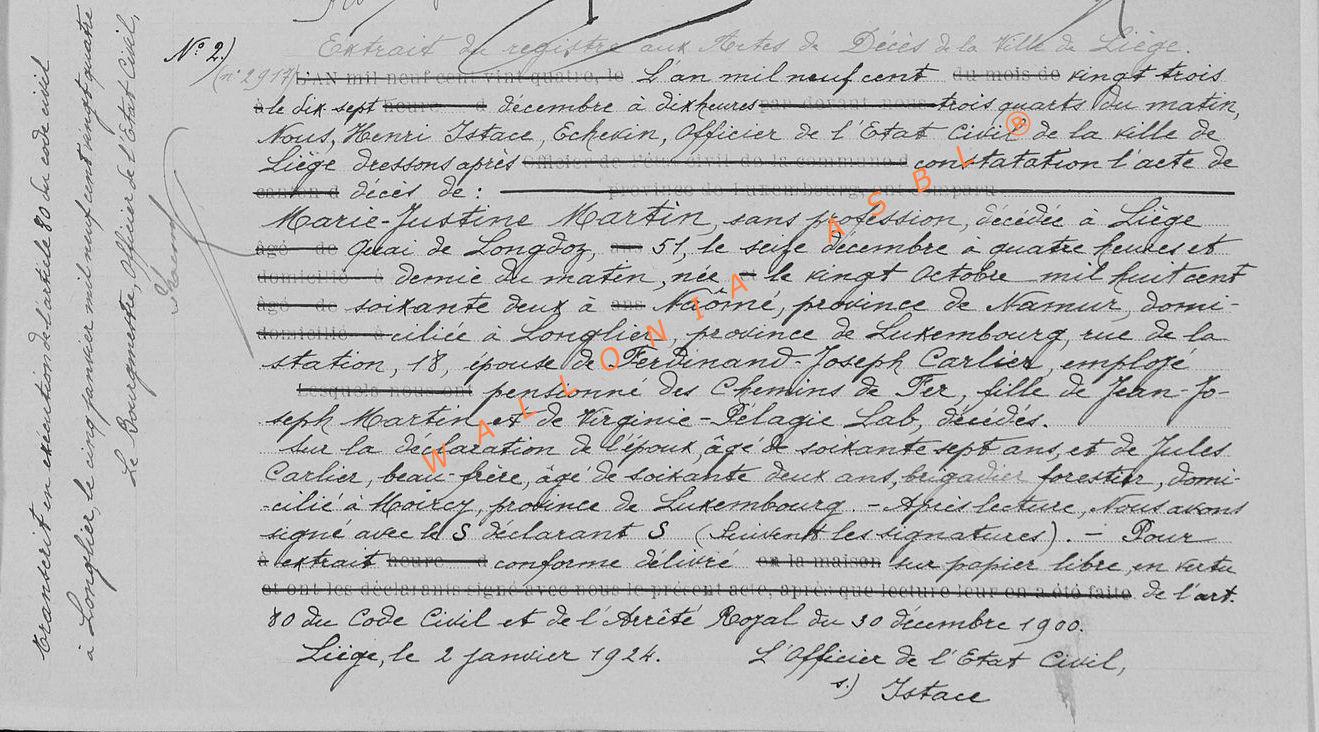 Transcrit en exécution de l'article 80 du code civil
à Longlier, le cinq janvier mil neuf cent vingt quatre
Le Bourgmestre, Officier de l'Etat Civil,
N° 2)
Extrait du registre aux Actes de Décès de la Ville de Liége.
(n° 2917) L'AN mil neuf cent vint quatre, le L'an mil neuf cent du mois de vingt trois
à le dix sept heure d décembre à dix heures par devant nous trois quarts du matin,
Nous, Henri Istace, Echevin, Officier de l'Etat Civil de la ville de
Liége dressons après officier de l'état civil de la commune d constatation l'acte de
canton d décès de : province de Luxembourg,
Marie-Justine Martin, sans profession, décédée à Liége
âgé de Quai de Longdoz, ans 51, le seize décembre à quatre heures et
domicilié à demie du matin, née le vingt Octobre mil huit cent
âgé de soixante deux à ans Naômé, province de Namur, domi-
domicilié à ciliée à Longlier, province de Luxembourg, rue de la
station, 18, épouse de Ferdinand-Joseph Carlier, employé
lesquels nous ont pensionné des Chemins de Fer, fille de Jean-Jo-
seph Martin et de Virginie-Pélagie Lab, décédés.
sur la déclaration de l'époux âgé de soixante sept ans, et de Jules
Carlier, beau-frère, âgé de soixante deux ans, brigadier forestier, domi-
-cilié à Moircy, province de Luxembourg - Après lecture, Nous avons
signé avec les déclarants (Suivent les signatures). - Pour
à extrait heure d conforme délivré en la maison sur papier libre, en vertu
et ont les déclarants signé avec nous le présent acte, après que lecture leur en a été faite de l'art.
80 du Code Civil et de l'Arrêté Royal du 30 décembre 1900.
Liége, le 2 janvier 1924. L'Officier de l'Etat Civil,
s.) Istace
WALLONIA ASBL ®